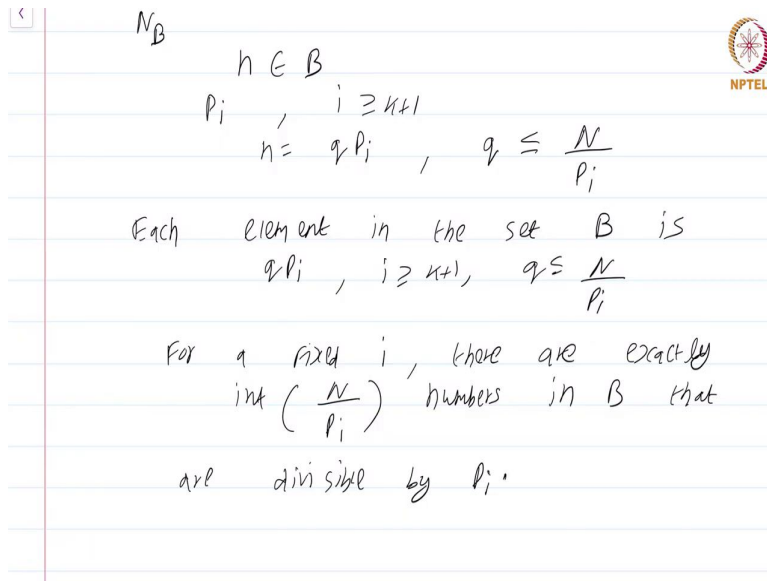 N_B
n ∈ B
P_i , i ≥ k+1
n = q P_i , q ≤ N/P_i
NPTEL
Each element in the set B is
q P_i , i ≥ k+1, q ≤ N/P_i
For a fixed i, there are exactly
int ( N/P_i ) numbers in B that
are divisible by P_i.